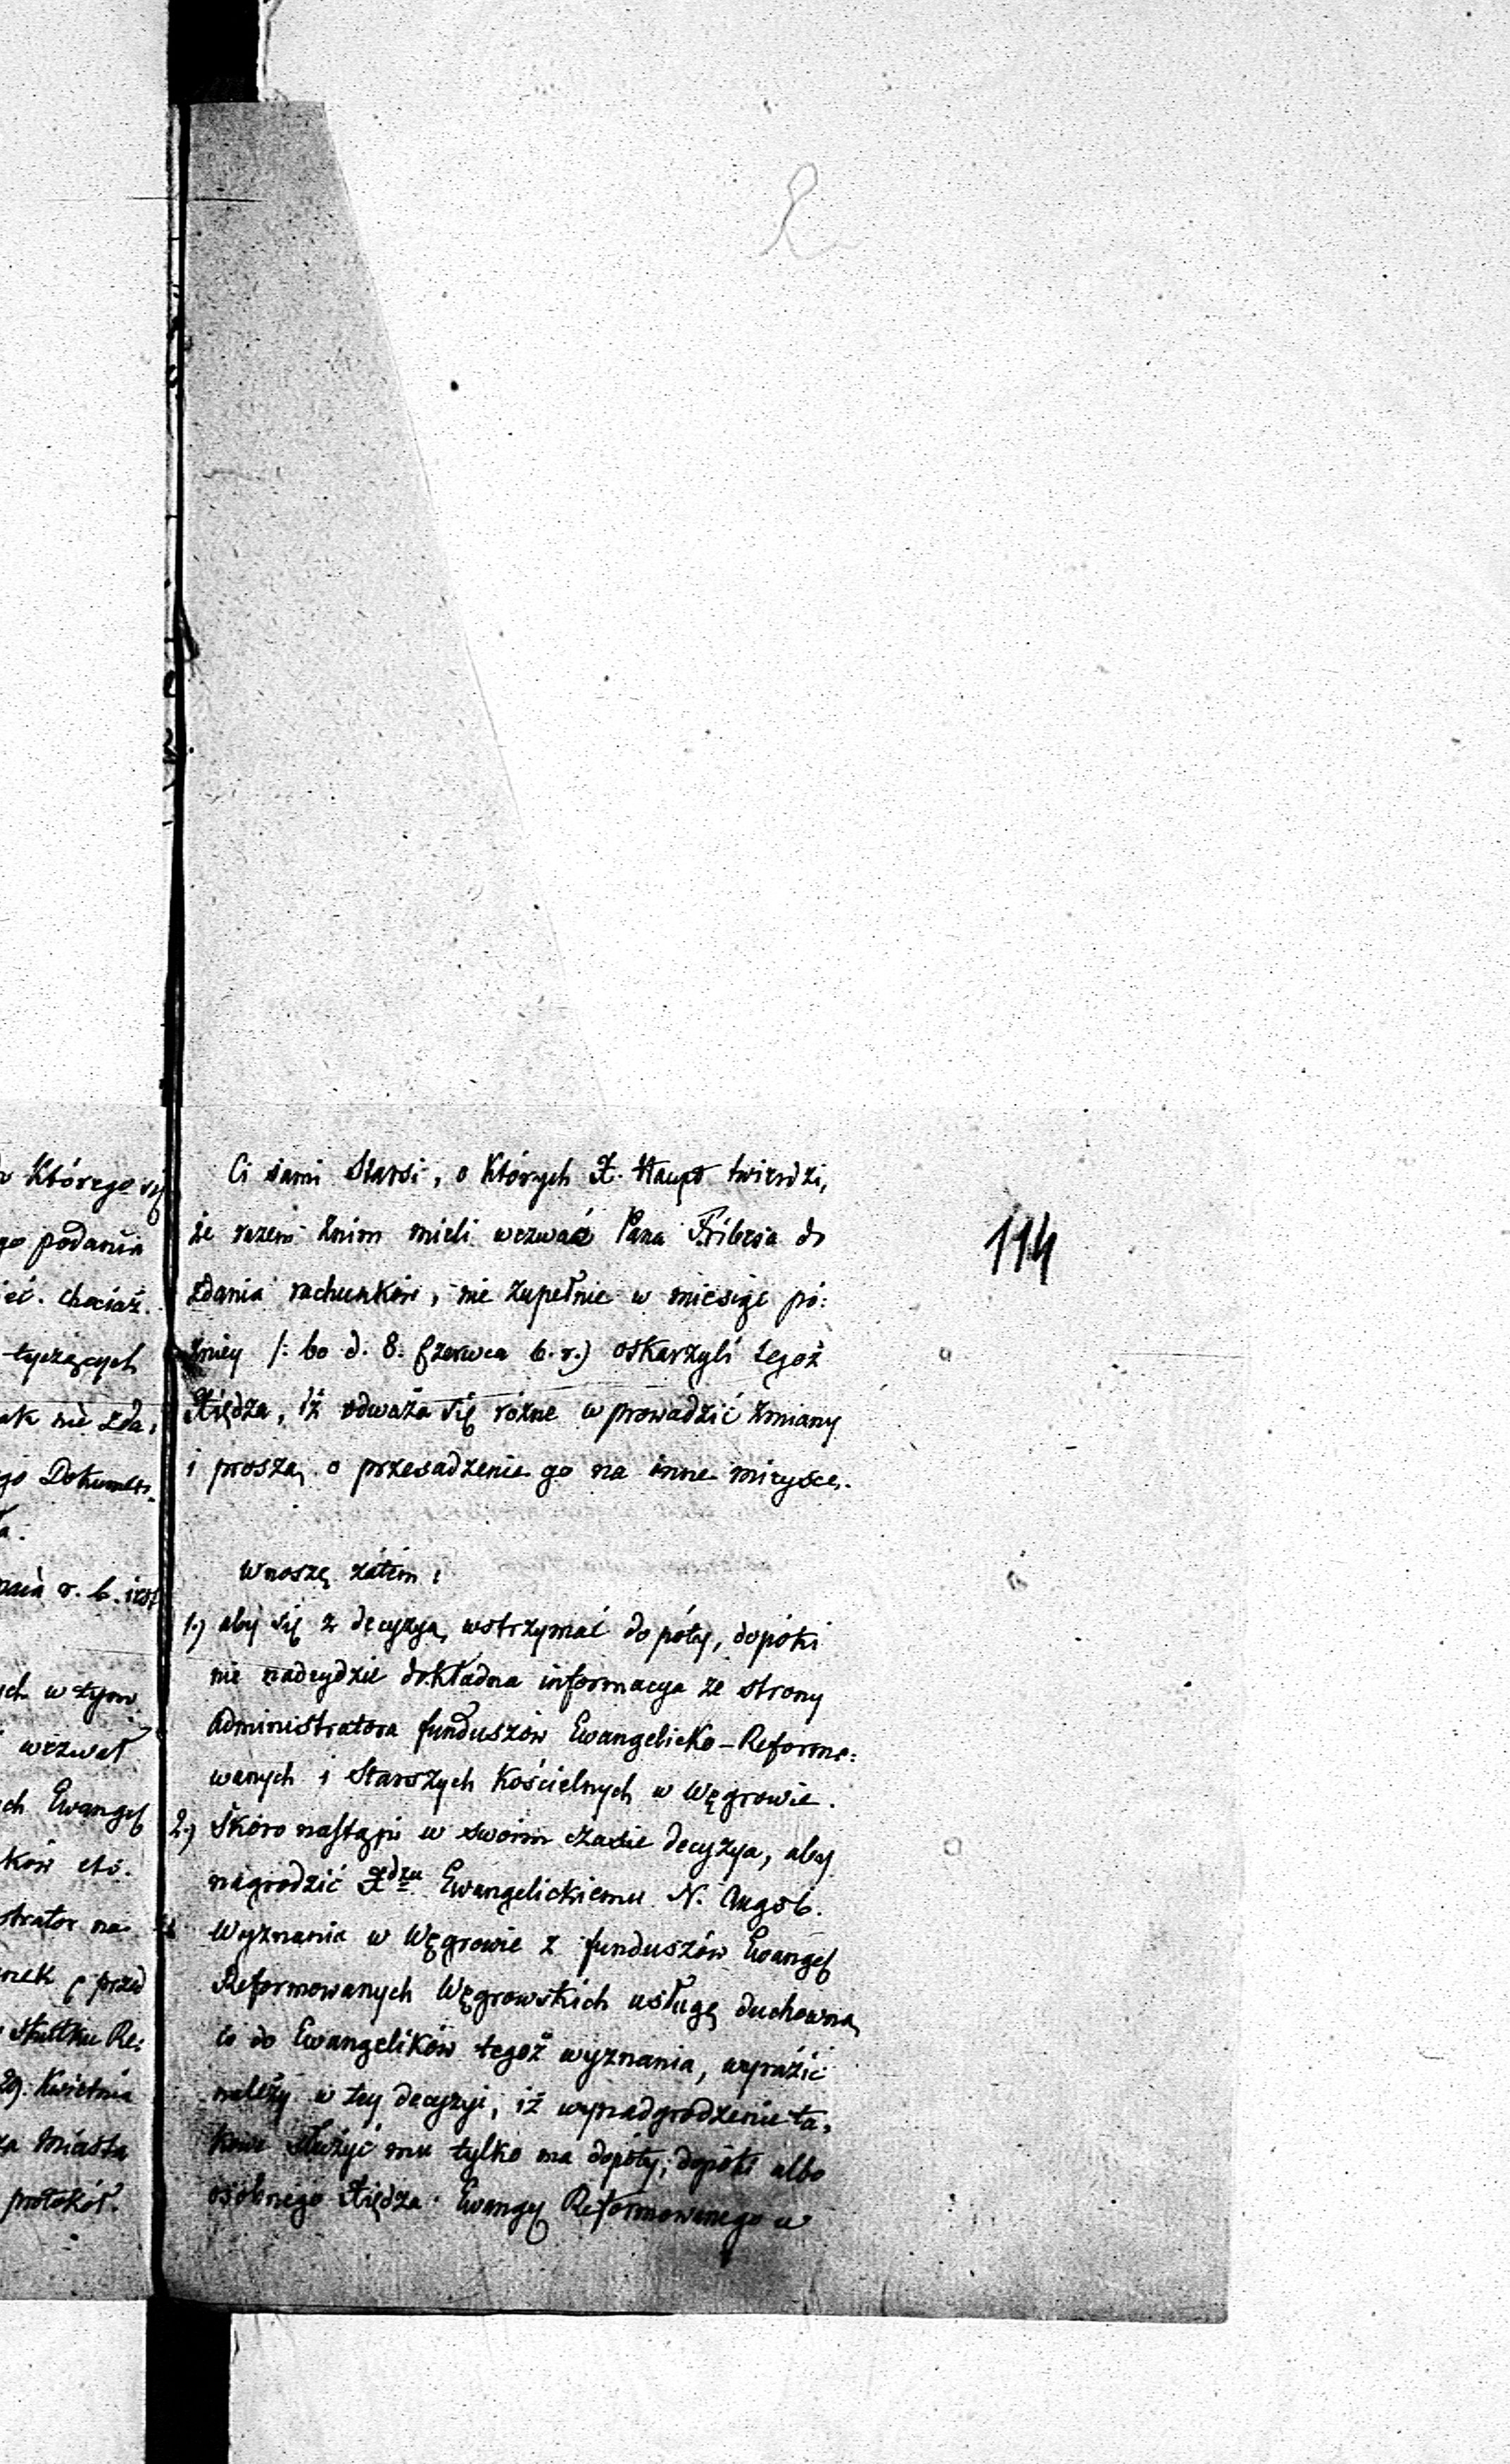 114
Ci sami Starsi, o których X. Haupt twierdzi,
że razem z nim mieli wezwać Pana Fribesa do
zdania rachunków, nie zupełnie w miesiąc pó:
zniey /: bo d. 8. Czerwca b. r.) oskarzyli tegoż
Xiędza, iż odważa się rożne wprowadzić zmiany
i proszą o przesadzenie go na inne mieysce.
Wnoszę zatém:
1.) aby się z decyzyą wstrzymać dopóty, dopóki
nie nadeydzie dokładna informacya ze strony
Administratora funduszów Ewangelicko-Reformo:
wanych i Starszych Kościelnych w Węgrowie.
2.) Skoro nastąpi w swoim czasie decyzya, aby
nagrodzić Xdzu Ewangelickiemu N. Augsb.
Wyznania w Węgrowie z funduszów Ewangel
Reformowanych Węgrowskich usługę duchowną
co do Ewangelików tegoż wyznania, wyrazić
należy w tey decyzyi, iż wynadgrodzenie ta:
kowe służyć mu tylko ma dopóty, dopóki albo
osobnego Xiędza Ewangel Reformowanego w
którego się
go podania
chociaż
tyczących
ak nie zda:
go Dokumen:
r. b.
ch w tym
wezwał
ch Ewangel
ków etc.
strator na
przed
skutku Re:
29. Kwietnia
za Miasta
protokół.